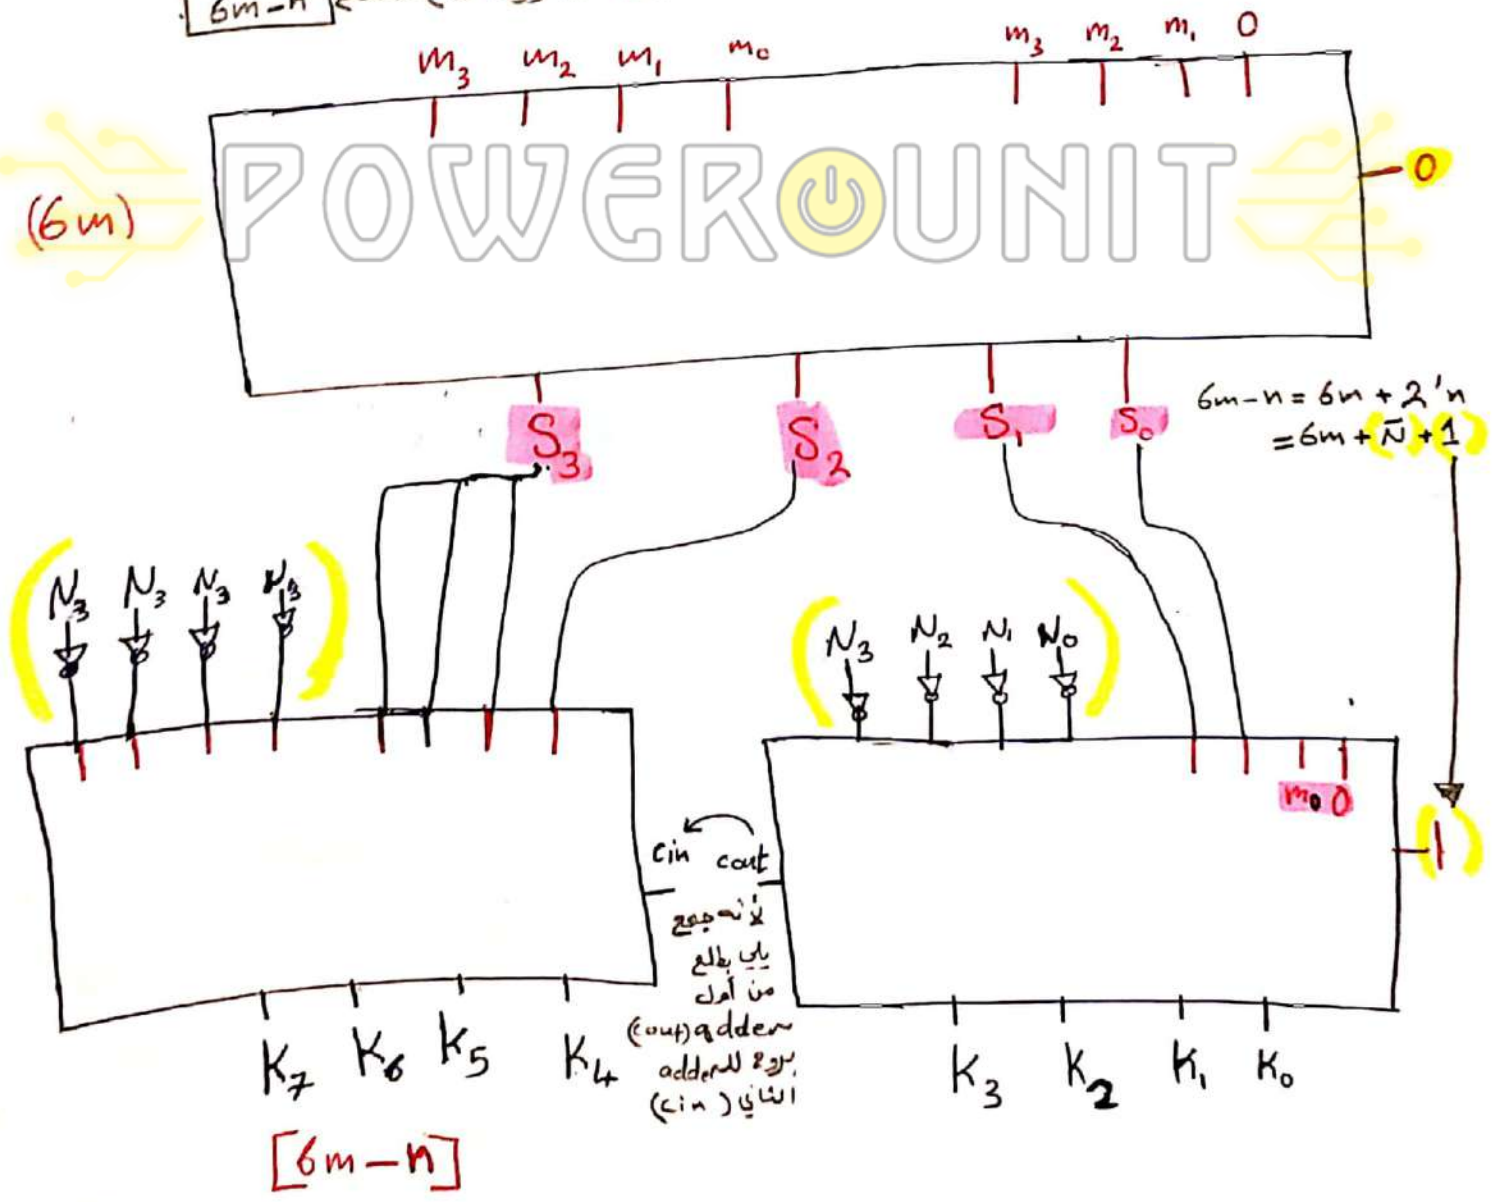 6m-n
m₃ m₂ m₁ m₀ m₃ m₂ m₁ 0
POWER UNIT
0
(6m)
S₃ S₂ S₁ S₀
6m-n = 6m + 2'n
= 6m + N̄ + 1
N₃ N₃ N₃ N₃
N₃ N₂ N₁ N₀
m₀ 0
1
Cin cout
لأنه جمع
يلي بطلع
من أول
(cout) adder
بروح للـ adder
الثاني (cin)
K₇ K₆ K₅ K₄ K₃ K₂ K₁ K₀
[6m-n]